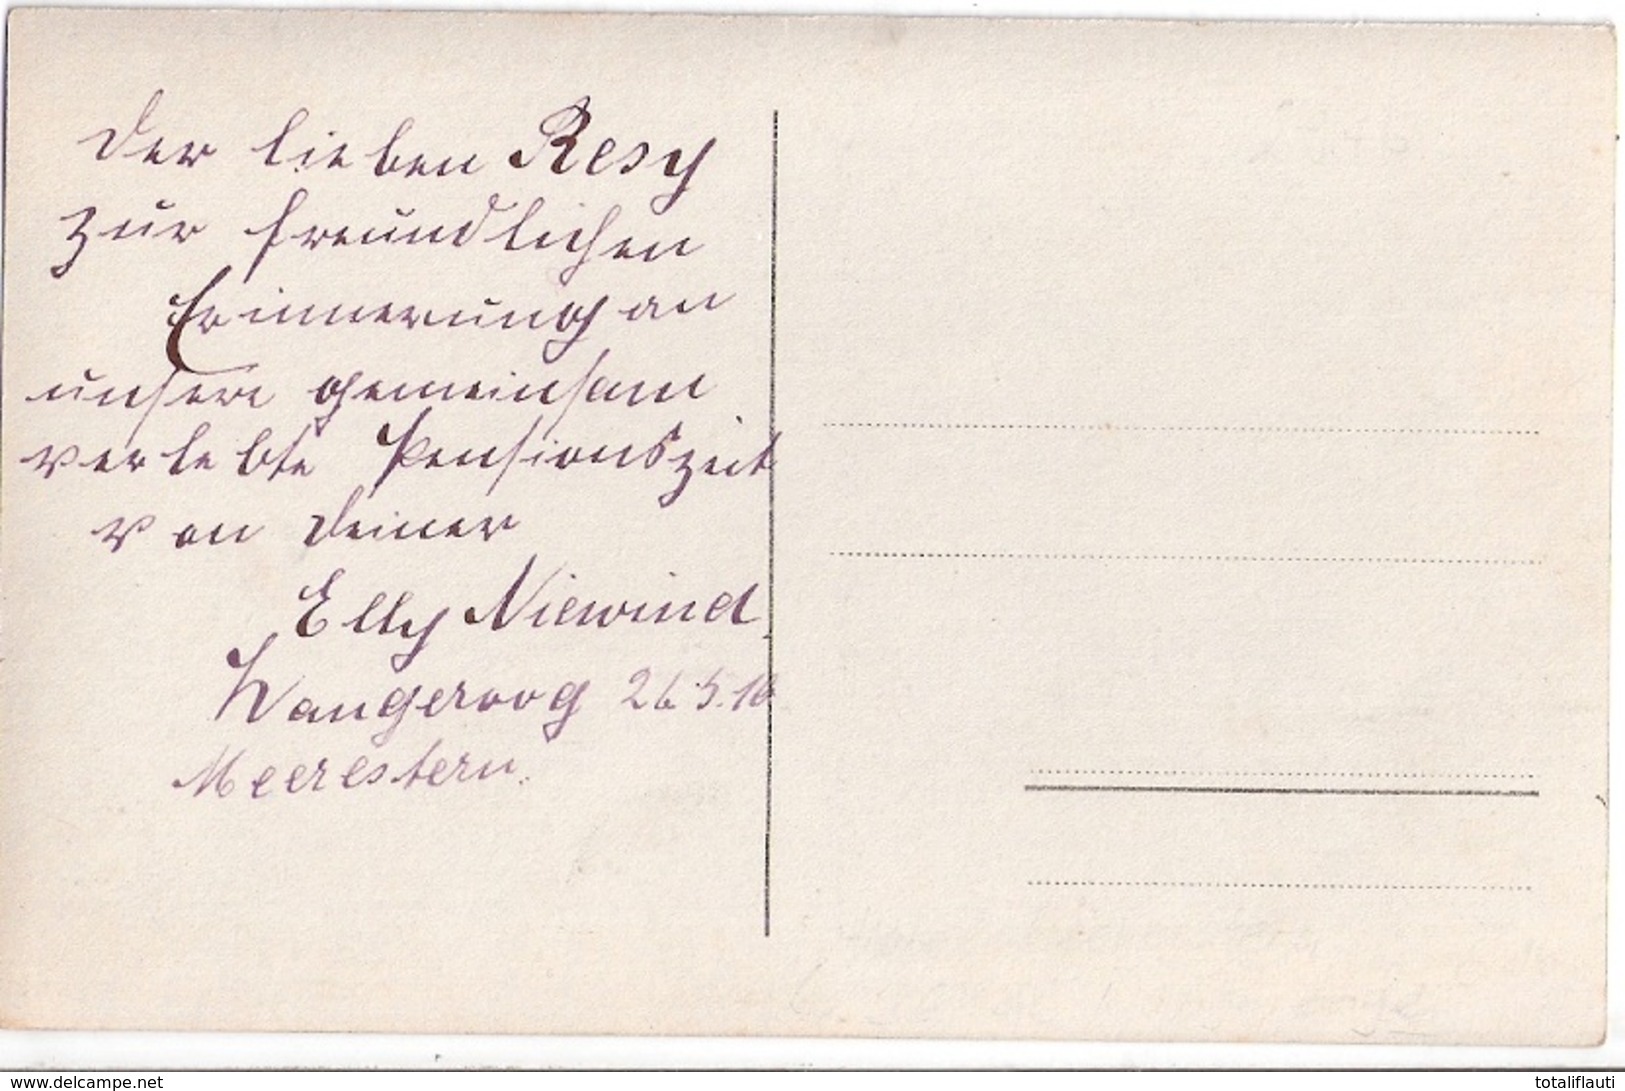 Der lieben Resy
zur freundlichen
Erinnerung an
unsere gemeinsam
verlebte Pensionszeit
von Deiner
Elly Niewind.
Wangeroog 26.5.16
Meerestern.
www.delcampe.net
totaliflauti